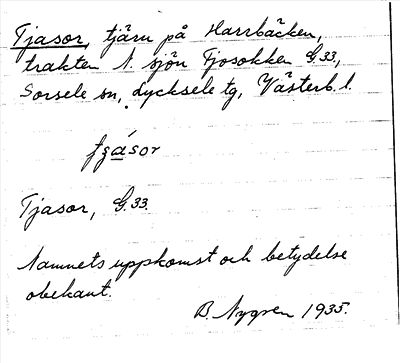 Tjasor, tjärn på Harrbäcken,
trakten N. sjön Tjosokken G.33,
Sorsele sn, Lycksele tg, Västerb. l.
Tjasor, G.33.
Namnets uppkomst och betydelse
obekant.
B. Nygren 1935.